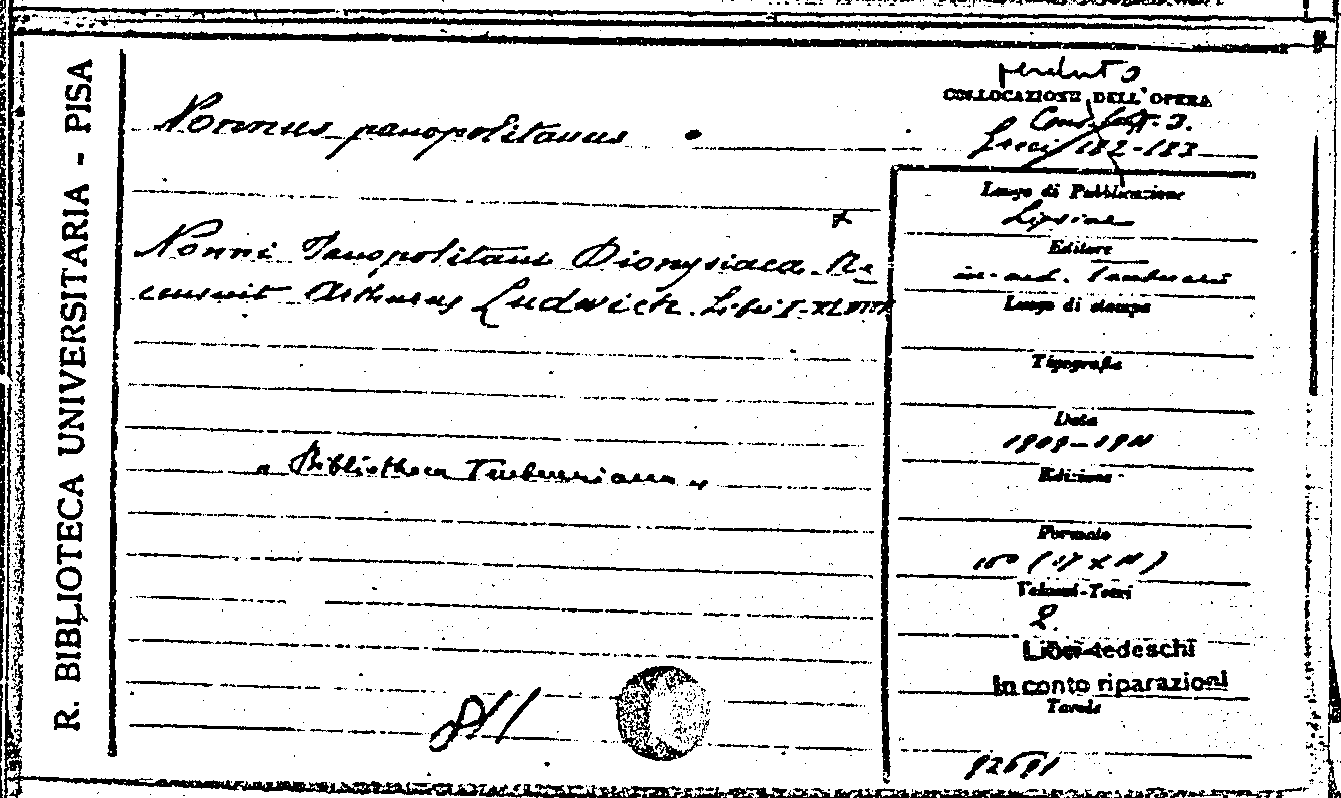 R. BIBLIOTECA UNIVERSITARIA - PISA
perduto
COLLOCAZIONE DELL'OPERA
Greci 182-183
Nonnus panopolitanus
Luogo di Pubblicazione
Lipsiae
Nonni Panopolitani Dionysiaca. Re
censuit Arthurus Ludwich. Libri I-XLVIII
Editore
in-aed. Teubneri
Luogo di stampa
Tipografia
Data
1909-1911
Edizione
« Bibliotheca Teubneriana »
Formato
16° (17 x 11)
Volumi-Tomi
2.
Libri tedeschi
In conto riparazioni
Tavole